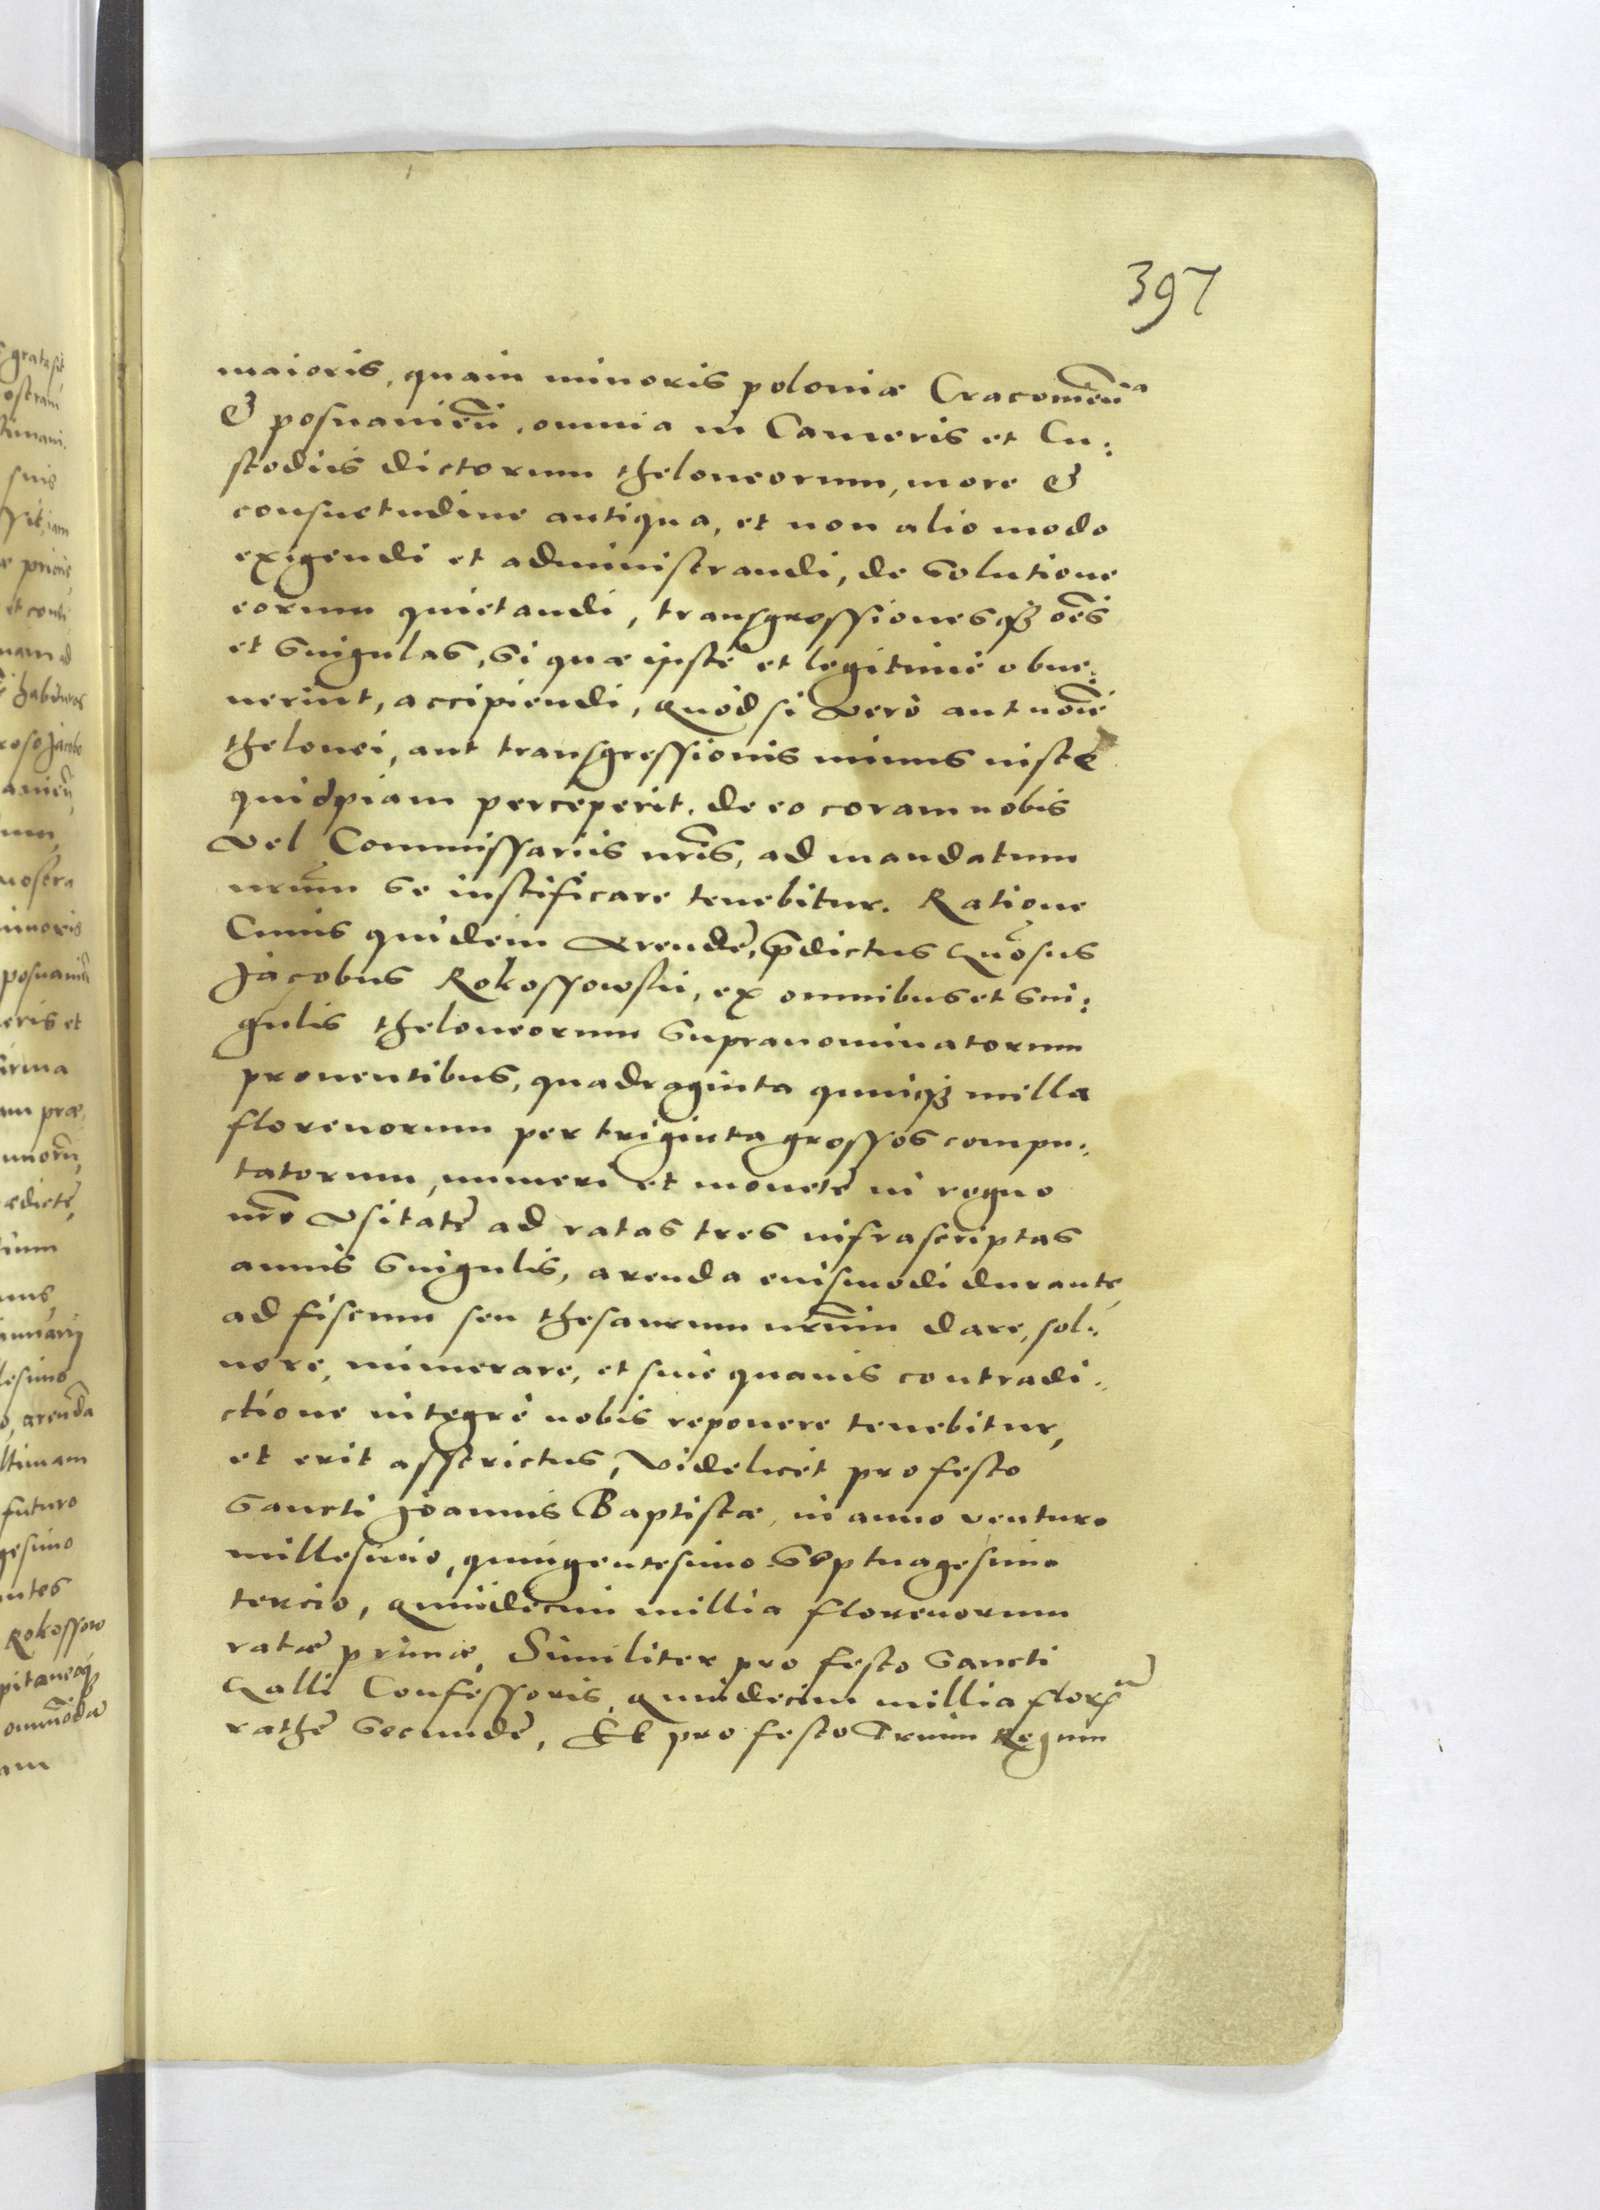 397
maioris, quam minoris poloniæ Cracouień
& posnanień. omnia in Cameris et Cu:
stodiis dictorum theloneorum, more &
consuetudine antiqua, et non alio modo
exigendi et administrandi, de Solutione
eorum quietandi, transgressionesqȝ oēs
et Singulas, Si quæ iuste et legitime obue:
nerint, accipiendi, Quod si vero aut noīe
thelonei, aut transgressionis minus iuste
quidpiam perceperit. de eo coram nobis
vel Commissariis nr̄is, ad mandatum
nrūm Se iustificare tenebitur. Ratione
Cuius quidem Arendę, p̄dictus Gn̄osus
Jacobus Rokossowski, ex omnibus et Sin:
gulis theloneorum Supranominatorum
prouentibus, quadraginta quinqȝ millia
florenorum per triginta grossos compu:
tatorum, numeri et monetę in regno
nr̄o vsitatę ad ratas tres infrascriptas
annis Singulis, arenda euismodi durante
ad fiscum seu thesaurum nrūm dare, sol:
uere, numerare, et sine quauis contradi:
ctione integrè nobis reponere tenebitur,
et erit asstrictus, Videlicet pro festo
Sancti Joannis Baptistæ, in anno venturo
millesimo, quingentesimo Septuagesimo
tercio, quindecim millia florenorum
ratæ primæ, Similiter pro festo Sancti
Galli Confessoris, quindecim millia flor
rathę Secundę, Et pro festo Trium Regum
gratasit
ostram
suis
et
nam
Jacobo
minoris
eris et
irma
am præ
ædictę,
nuarij
arenda
ltimam
futuro
gesimo
ntes
Rokossow